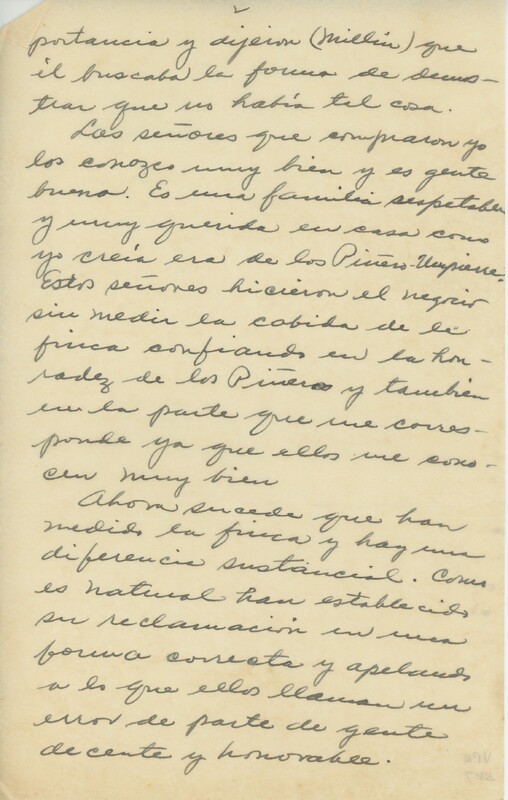 portancia y dijeron (Millín) que
él buscaba la forma de demos-
trar que no había tal cosa.
Los señores que compraron yo
los conozco muy bien y es gente
buena. Es una familia respetable
y muy querida en casa como
yo creía era de los Piñero-Umpierre.
Estos señores hicieron el negocio
sin medir la cabida de la
finca confiando en la hon-
radez de los Piñero y también
en la parte que me corres-
ponde ya que ellos me cono-
cen muy bien
Ahora sucede que han
medido la finca y hay una
diferencia sustancial. Como
es natural han establecido
su reclamación en una
forma correcta y apelando
a lo que ellos llaman un
error de parte de gente
decente y honorable.